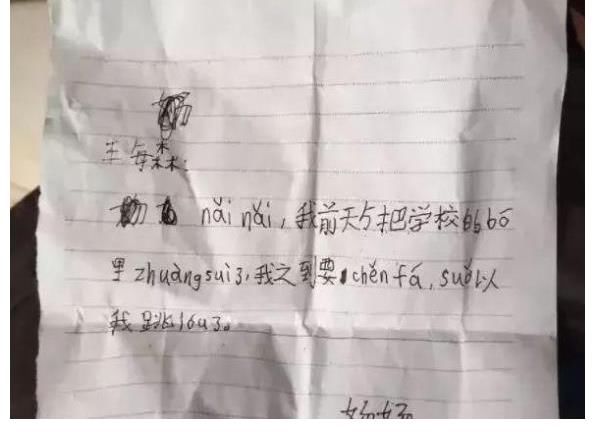 森:
nǎi nǎi, 我前天把学校的bō
里zhuàngsuì了,我之到要chěn fá, suǒ以
我跳lóu了。